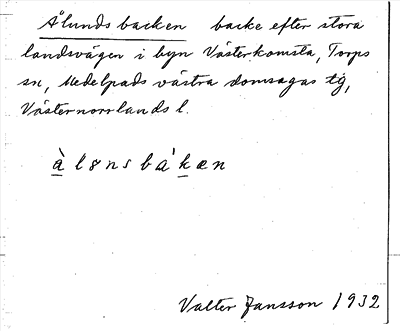 Ålunds backen backe efter stora
landsvägen i byn Västerkomsta, Torps
sn, Medelpads västra domsagas tg,
Västernorrlands l.
à l ꞷ n s b a ̍ k æ n
Valter Jansson 1932